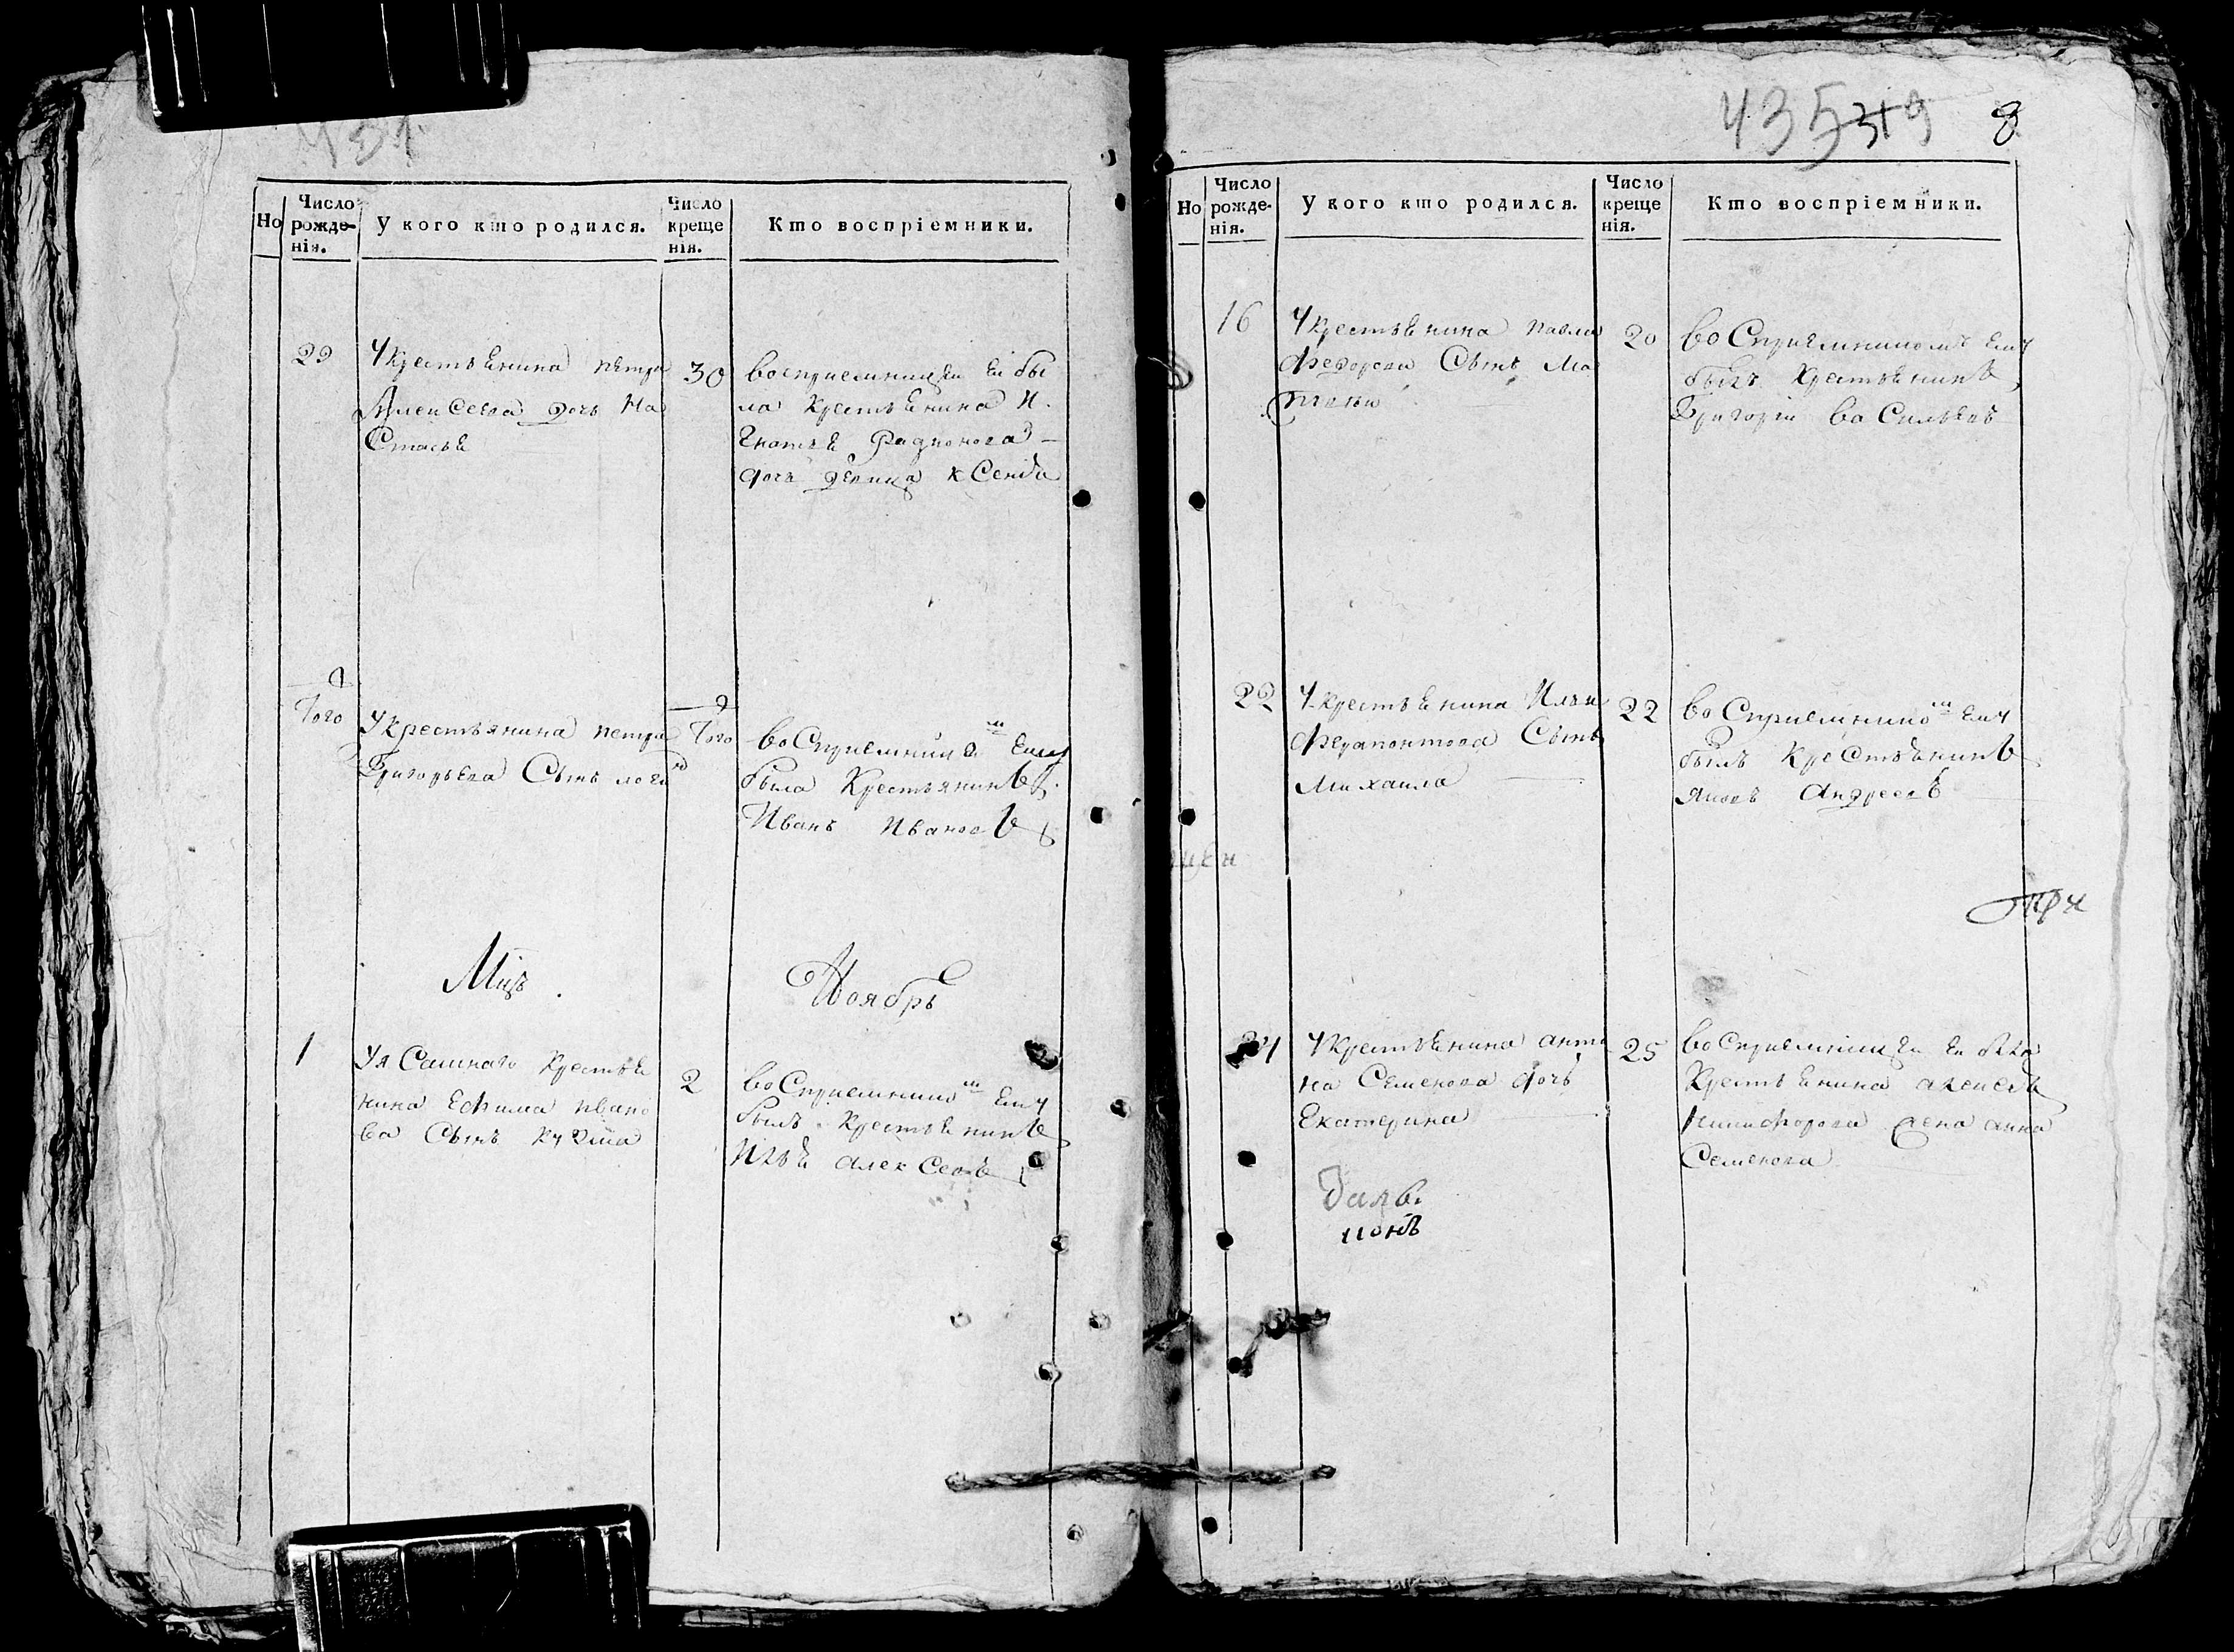 435 319 8
Но
Число рожде-нія.
У кого кто родился.
Число креще нія.
Кто воспріемники.
29
Укрестьянина петра
Алексеева дочь На
Стасья
30
воспріемницей ей бы
ла Крестьянина И.
Гнатья Радионова
дочь девица кСенья
Того
Укрестьянина петра
Григорьева Сынъ логи
Того
воСпріемница ему
была Крестьянинъ
Иванъ Ивановъ
Мцъ
Ноябрь
1
Уясашнаго Крестья
нина Ефима ивано
ва Сынъ кузма
2
воСприемникомъ ему
былъ Крестьянинъ
Илья алекСеевъ
Но
Число рожде-нія.
У кого кто родился.
Число креще нія.
Кто воспріемники.
16
Укрестьянина павла
Федорова Сынъ Ма
20
воСприемникомъ ему
былъ Крестьянинъ
Григорей ваСильевъ
22
Укрестьянина Ильи
Ферапонтова Сынъ
Михаила
22
воСприемникомъ ему
былъ КреСтьянинъ
Яковъ Андреевъ
при
24
Укрестьянина анто
на Семенова дочь
Екатерина
25
воСприемницей ей была
Крестьянина алексея
Никифорова жена анна
Семенова